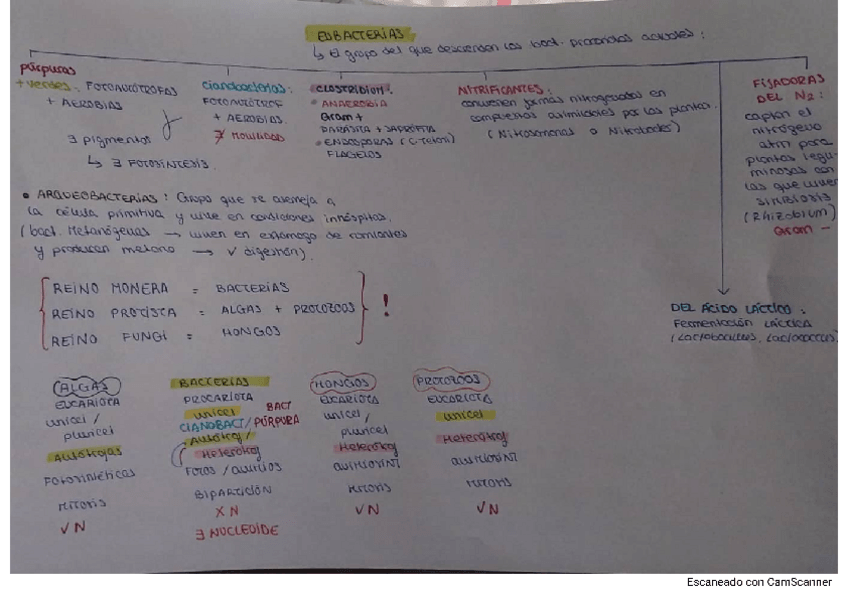 EUBACTERIAS
↳ El grupo del que descienden las bact. procariotas actuales:
púrpuras
+ verdes: FOTOAUTÓTROFAS
+ AEROBIAS
∃ pigmentos
↳ ∃ FOTOSÍNTESIS.
cianobacterias:
FOTOAUTÓTROF
+ AEROBIAS.
∄ MOVILIDAD
CLOSTRIDIUM:
• ANAEROBIA
Gram +
PARÁSITA + SAPRÓFITA
• ENDOSPORAS (C. tetani)
FLAGELOS
NITRIFICANTES:
convierten formas nitrogenadas en
compuestos asimilables por las plantas.
(Nitrosomonas o
FIJADORAS
DEL N2:
captan el
nitrógeno
atm para
plantas legu
minosas con
las que viven
simbiosis
(Rhizobium)
Gram -
• ARQUEOBACTERIAS: Grupo que se asemeja a
la célula primitiva y vive en condiciones inhóspitas.
(bact. Metanógenas → viven en estómago de rumiantes
y producen metano → ✓ digestión).
REINO MONERA = BACTERIAS
REINO PROTISTA = ALGAS + PROTOZOOS
REINO FUNGI = HONGOS
!
DEL ÁCIDO LÁCTICO:
Fermentación láctica
(Lactobacillus, Lactococcus)
ALGAS
EUCARIOTA
unicel /
pluricel
Autótrofas
FOTOSINTÉTICAS
MITOSIS
✓ N
BACTERIAS
PROCARIOTA
unicel
BACT
CIANOBACT/PÚRPURA
Autótrof/
Heterótrof
FOTOS /
BIPARTICIÓN
X N
∃ NUCLEOIDE
HONGOS
EUCARIOTA
unicel /
pluricel
Heterótrof
QUIMIOSINT
MITOSIS
✓ N
PROTOZOOS
EUCARIOTA
unicel
Heterótrof
QUIMIOSINT
MITOSIS
✓ N
Escaneado con CamScanner